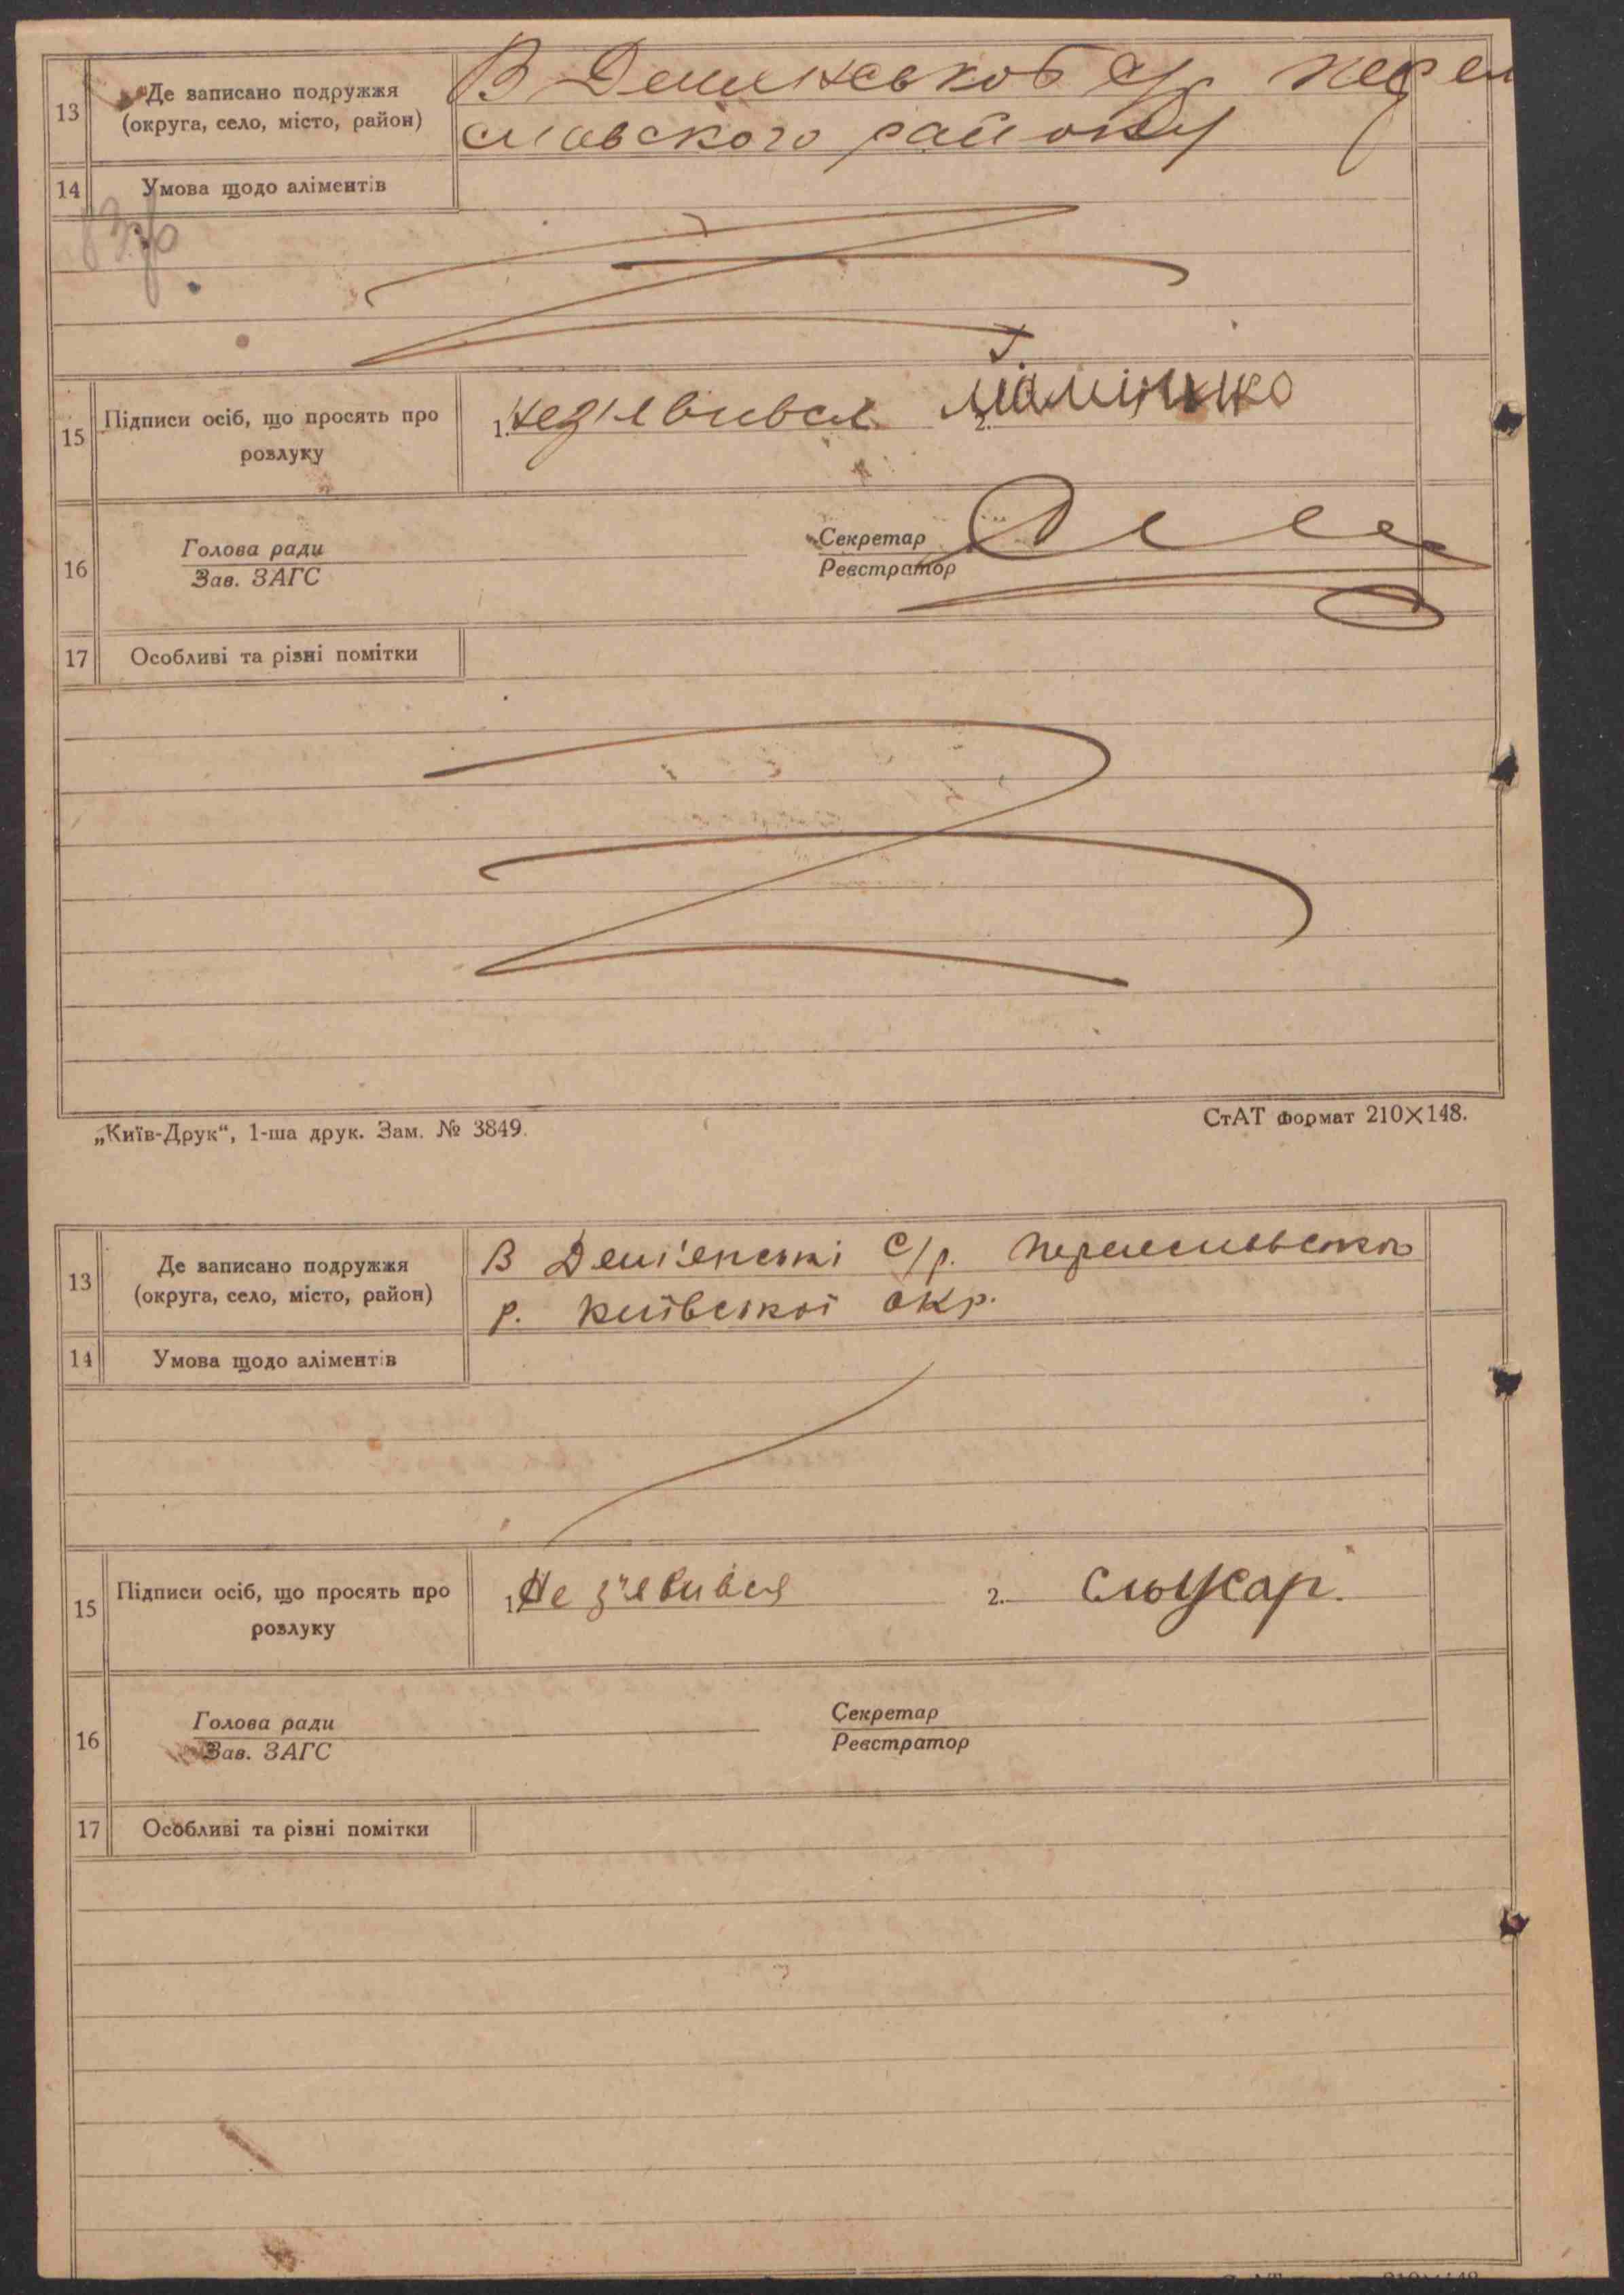 13 Де записано подружжя
(округа, село, місто, район)
В с/р
района
14 Умова щодо аліментів
15 Підписи осіб, що просять про
розлуку
1. нез'явився 2.
16 Голова ради
Зав. ЗАГС
Секретар
Реєстратор
17 Особливі та різні помітки
„Київ-Друк“, 1-ша друк. Зам. № 3849.
СтАТ формат 210×148.
13 Де записано подружжя
(округа, село, місто, район)
В Дем'янські с/р. Переяславсько
р. Київської окр.
14 Умова щодо аліментів
15 Підписи осіб, що просять про
розлуку
1. Не з'явився 2. Слюсар.
16 Голова ради
Зав. ЗАГС
Секретар
Реєстратор
17 Особливі та різні помітки